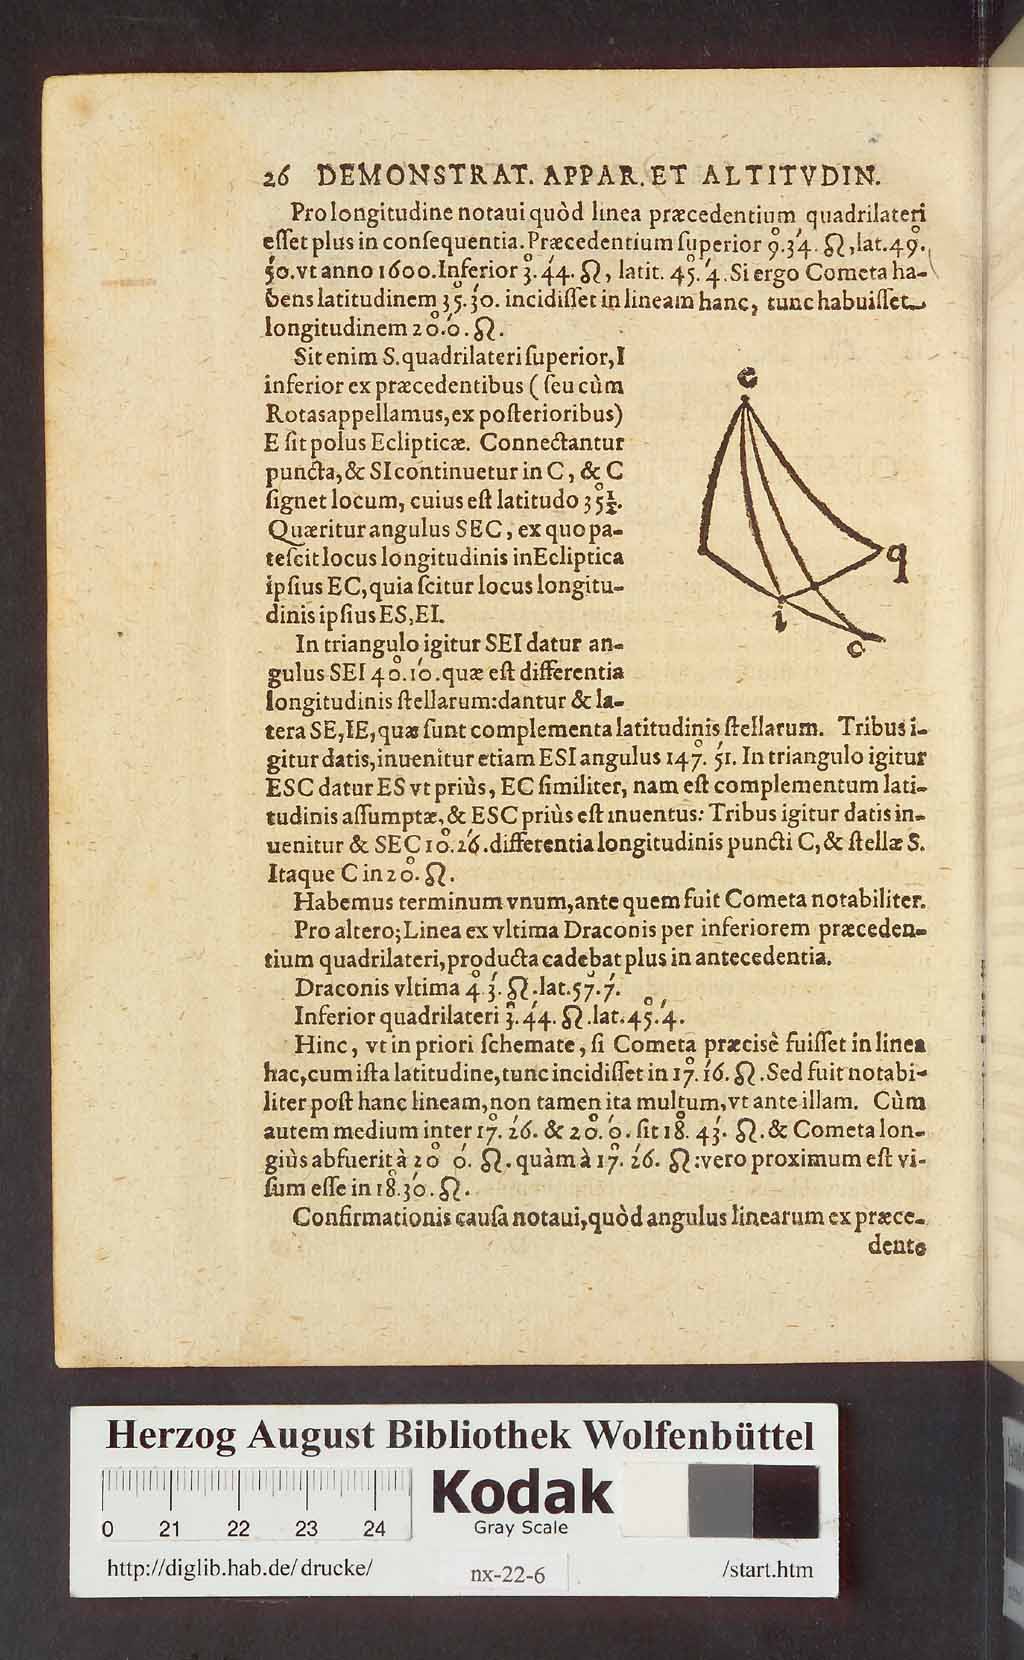 26 DEMONSTRAT. APPAR. ET ALTITVDIN.
Pro longitudine notaui quòd linea præcedentium quadrilateri
eſſet plus in conſequentia. Præcedentium ſuperior 9°. 34′. ♌, lat. 49°.
50′. vt anno 1600. Inferior 3°. 44′. ♌, latit. 45°. 4′. Si ergo Cometa ha-
bens latitudinem 35°. 30′. incidiſſet in lineam hanc, tunc habuiſſet
longitudinem 20°. 0′. ♌.
Sit enim S. quadrilateri ſuperior, I
inferior ex præcedentibus ( ſeu cùm
Rotas appellamus, ex poſterioribus)
E ſit polus Eclipticæ. Connectantur
puncta, & SI continuetur in C, & C
ſignet locum, cuius eſt latitudo 35°½.
Quæritur angulus SEC, ex quo pa-
teſcit locus longitudinis in Ecliptica
ipſius EC, quia ſcitur locus longitu-
dinis ipſius ES, EI.
In triangulo igitur SEI datur an-
gulus SEI 40°. 10′. quæ eſt differentia
longitudinis ſtellarum: dantur & la-
e
q
i
c
tera SE, IE, quæ ſunt complementa latitudinis ſtellarum. Tribus i-
gitur datis, inuenitur etiam ESI angulus 147°. 51′. In triangulo igitur
ESC datur ES vt priùs, EC ſimiliter, nam eſt complementum lati-
tudinis aſſumptæ, & ESC priùs eſt inuentus: Tribus igitur datis in-
uenitur & SEC 10°. 26′. differentia longitudinis puncti C, & ſtellæ S.
Itaque C in 20°. ♌.
Habemus terminum vnum, ante quem fuit Cometa notabiliter.
Pro altero; Linea ex vltima Draconis per inferiorem præceden-
tium quadrilateri, producta cadebat plus in antecedentia.
Draconis vltima 4°. 3′. ♌. lat. 57°. 7′.
Inferior quadrilateri 3°. 44′. ♌. lat. 45°. 4′.
Hinc, vt in priori ſchemate, ſi Cometa præcisè fuiſſet in linea
hac, cum iſta latitudine, tunc incidiſſet in 17°. 16′. ♌. Sed fuit notabi-
liter poſt hanc lineam, non tamen ita multum, vt ante illam. Cùm
autem medium inter 17°. 26′. & 20°. 0′. ſit 18°. 43′. ♌. & Cometa lon-
giùs abfuerit à 20° 0′. ♌. quàm à 17°. 26′. ♌: vero proximum eſt vi-
ſum eſſe in 18°. 30′. ♌.
Confirmationis cauſa notaui, quòd angulus linearum ex præce-
dente
Herzog August Bibliothek Wolfenbüttel
0 21 22 23 24
Kodak
Gray Scale
http://diglib.hab.de/drucke/ nx-22-6 /start.htm